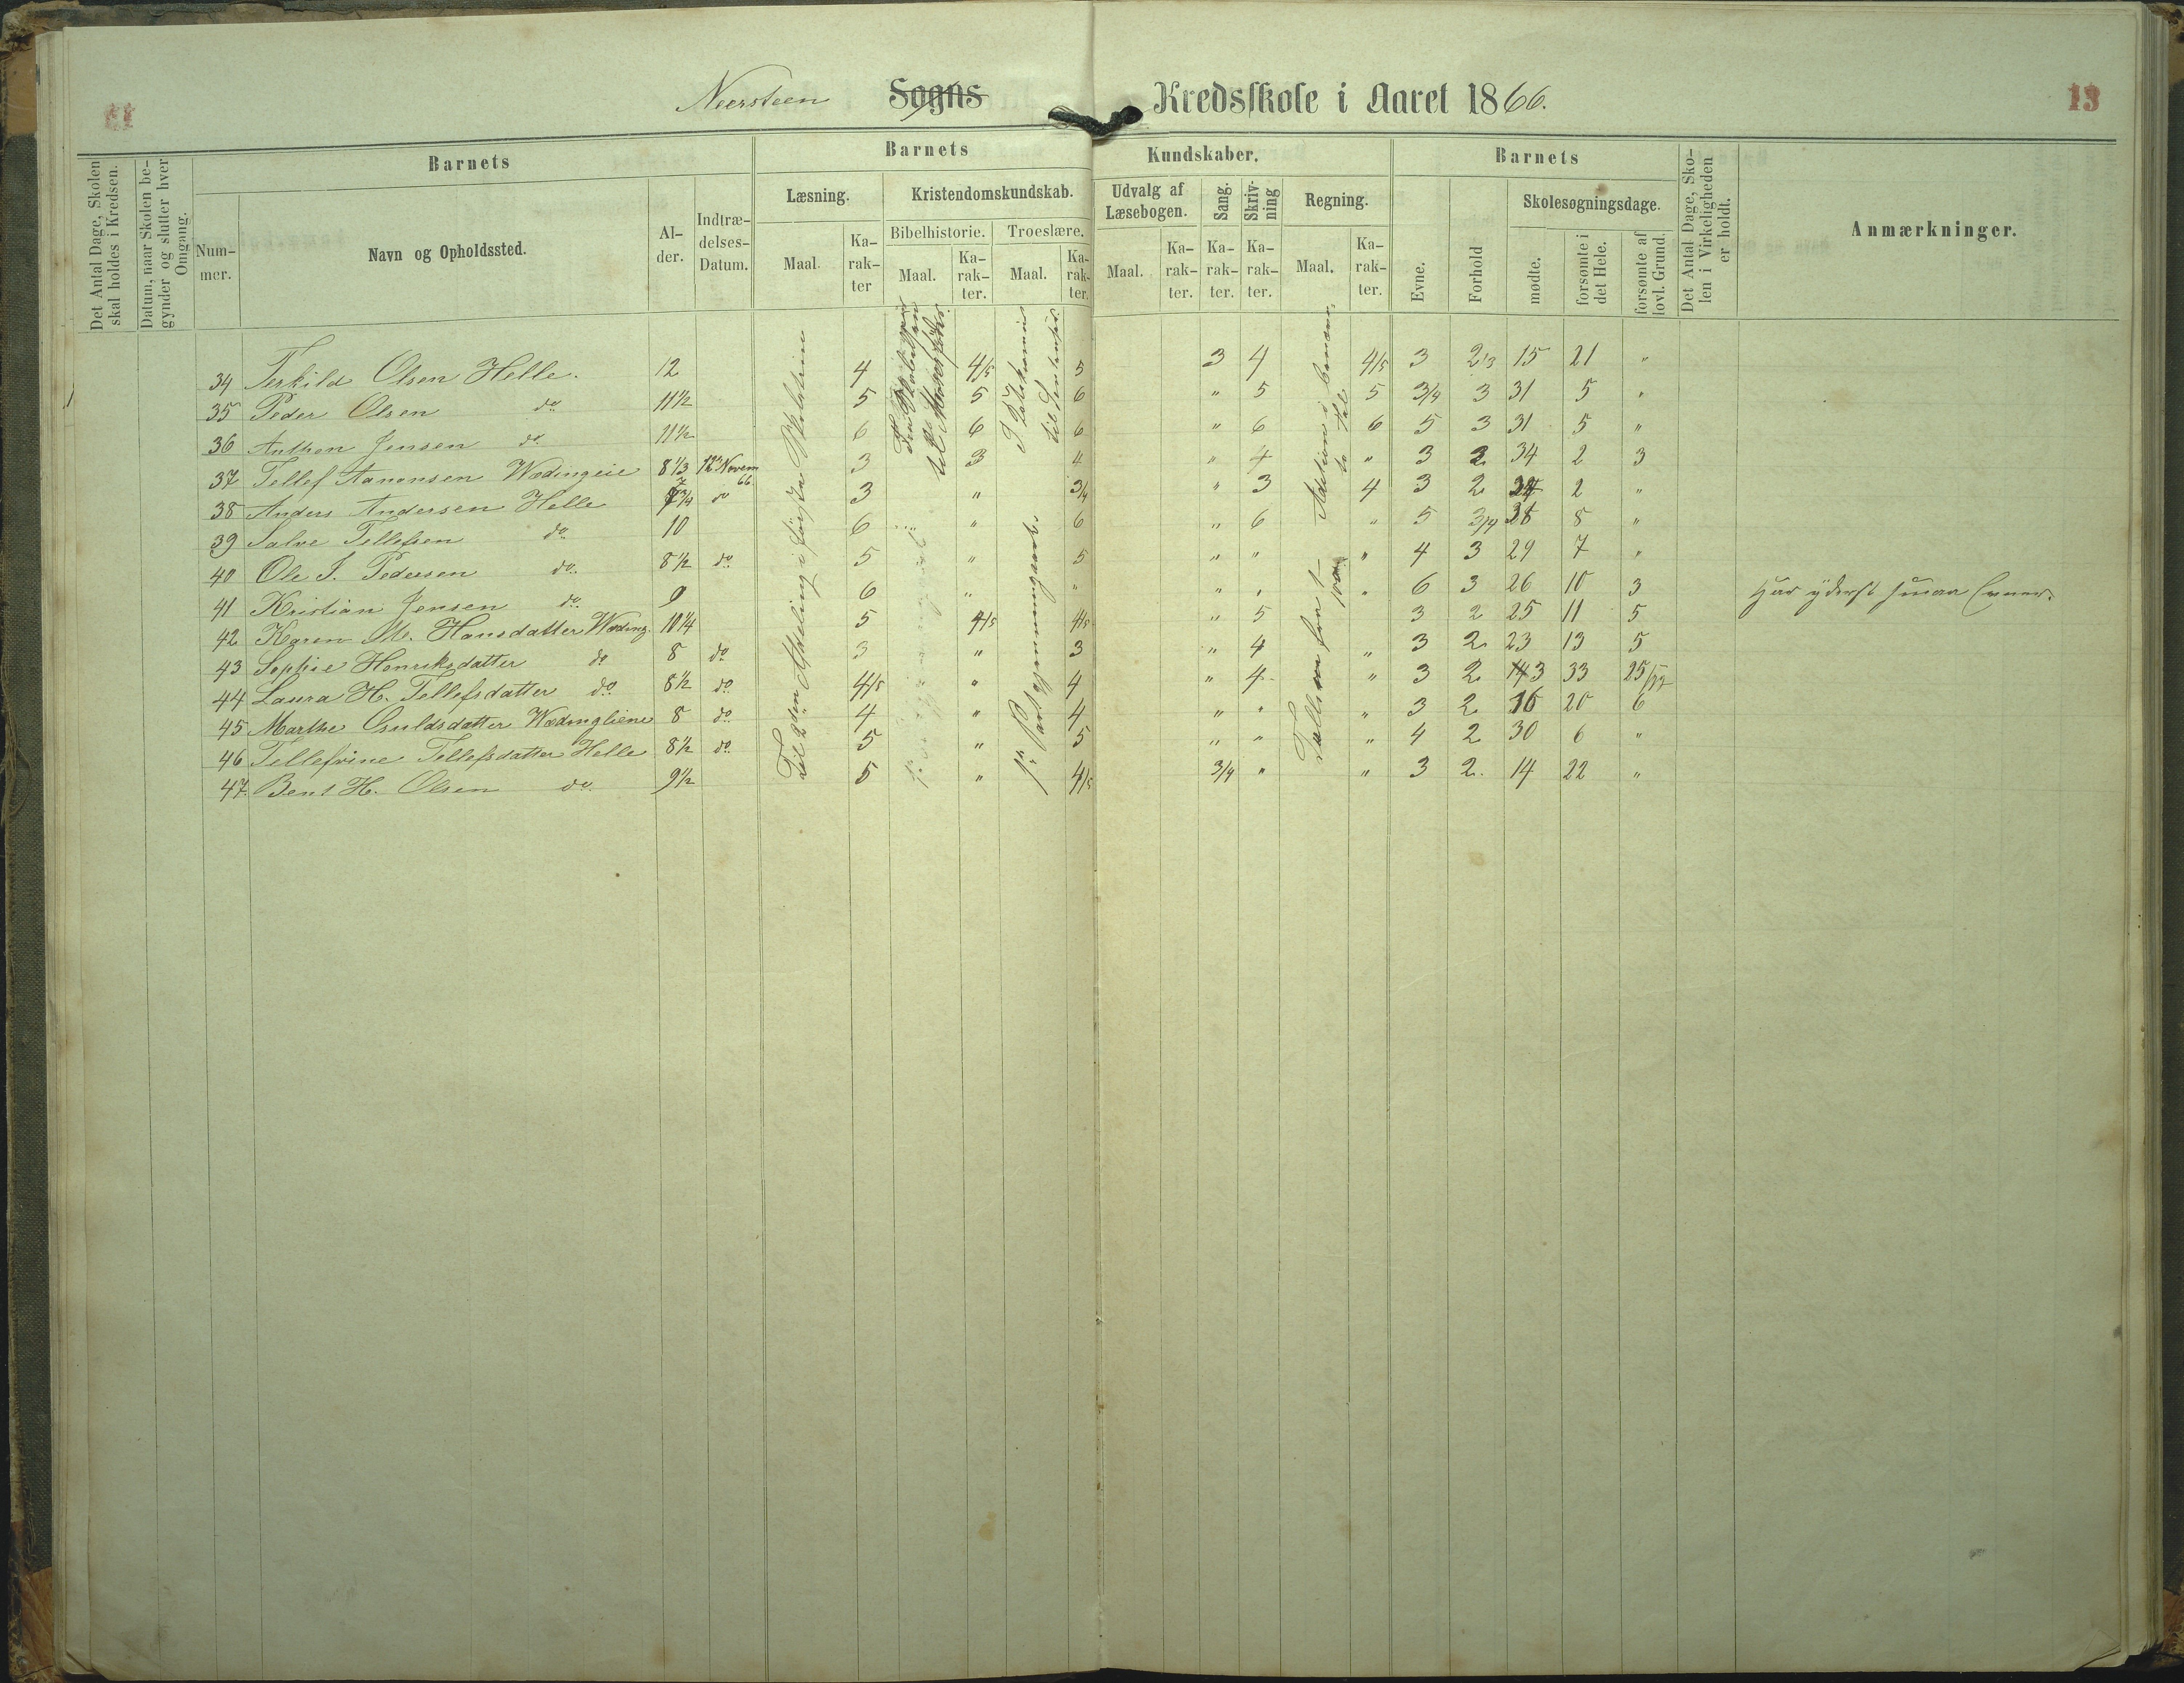 Neersteen Sogns Kredsskole i Aaret 1866.
13
Det Antal Dage, Skolen skal holdes i Kredsen.
Datum, naar Skolen begynder og slutter hver Omgang.
Barnets
Nummer.
Navn og Opholdssted.
Alder.
Indtrædelses-Datum.
Barnets Kundskaber.
Læsning.
Maal.
Karakter
Kristendomskundskab.
Bibelhistorie.
Maal.
Karakter.
Troeslære.
Maal.
Karakter.
Udvalg af Læsebogen.
Maal.
Karakter.
Sang.
Karakter.
Skrivning
Karakter.
Regning.
Maal.
Karakter.
Barnets
Evne.
Forhold
Skolesøgningsdage.
mødte.
forsømte i det Hele.
forsømte af lovl. Grund.
Det Antal Dage, Skolen i Virkeligheden er holdt.
Anmærkninger.
34 Terkild Olsen Helle. 12 4 4/5 5 3 4 4/5 3 2/3 15 21 "
35 Peder Olsen do 11 1/2 5 5 6 " 5 5 3/4 3 31 5 "
36 Anthon Jensen do 11 1/2 6 6 6 " 6 6 5 3 31 5 "
37 Tellef Aanonsen Wædingeie 8 1/3 12 Novem 66 3 3 4 " 4 " 3 2 34 2 3
38 Anders Andersen Helle 7 3/4 do 3 " 3/4 " 3 4 3 2 34 2 "
39 Salve Tellefsen do 10 6 " 6 " 6 " 5 3/4 28 8 "
40 Ole S. Pedersen do. 8 1/2 do. 5 " 5 " " " 4 3 29 7 "
41 Kristian Jensen do. 9 6 " " " " " 6 3 26 10 3 Har yderst smaa Evner.
42 Karen M. Hansdatter Wæding. 10 1/4 5 4/5 4/5 " 5 3 2 25 11 5
43 Sophie Henriksdatter do 8 do. 3 " 3 " 4 " 3 2 23 13 5
44 Laura H. Tellefsdatter do. 8 1/2 do. 4/5 " 4 " 4 " 3 2 3 33
45 Marthe Guldsdatter Wædingliene 8 do. 4 " 4 " " " 3 2 16 20 6
46 Tellefine Tellefsdatter Helle 8 1/2 do. 5 " 5 " " " 4 2 30 6 "
47. Bent H. Olsen do. 9 1/2 5 " 4/5 3/4 " " 3 2. 14 22 "
Til 2den Afdeling i første
til
til
1ste Part gjennemgaaet.
Addition i
Tallene fra 1-100